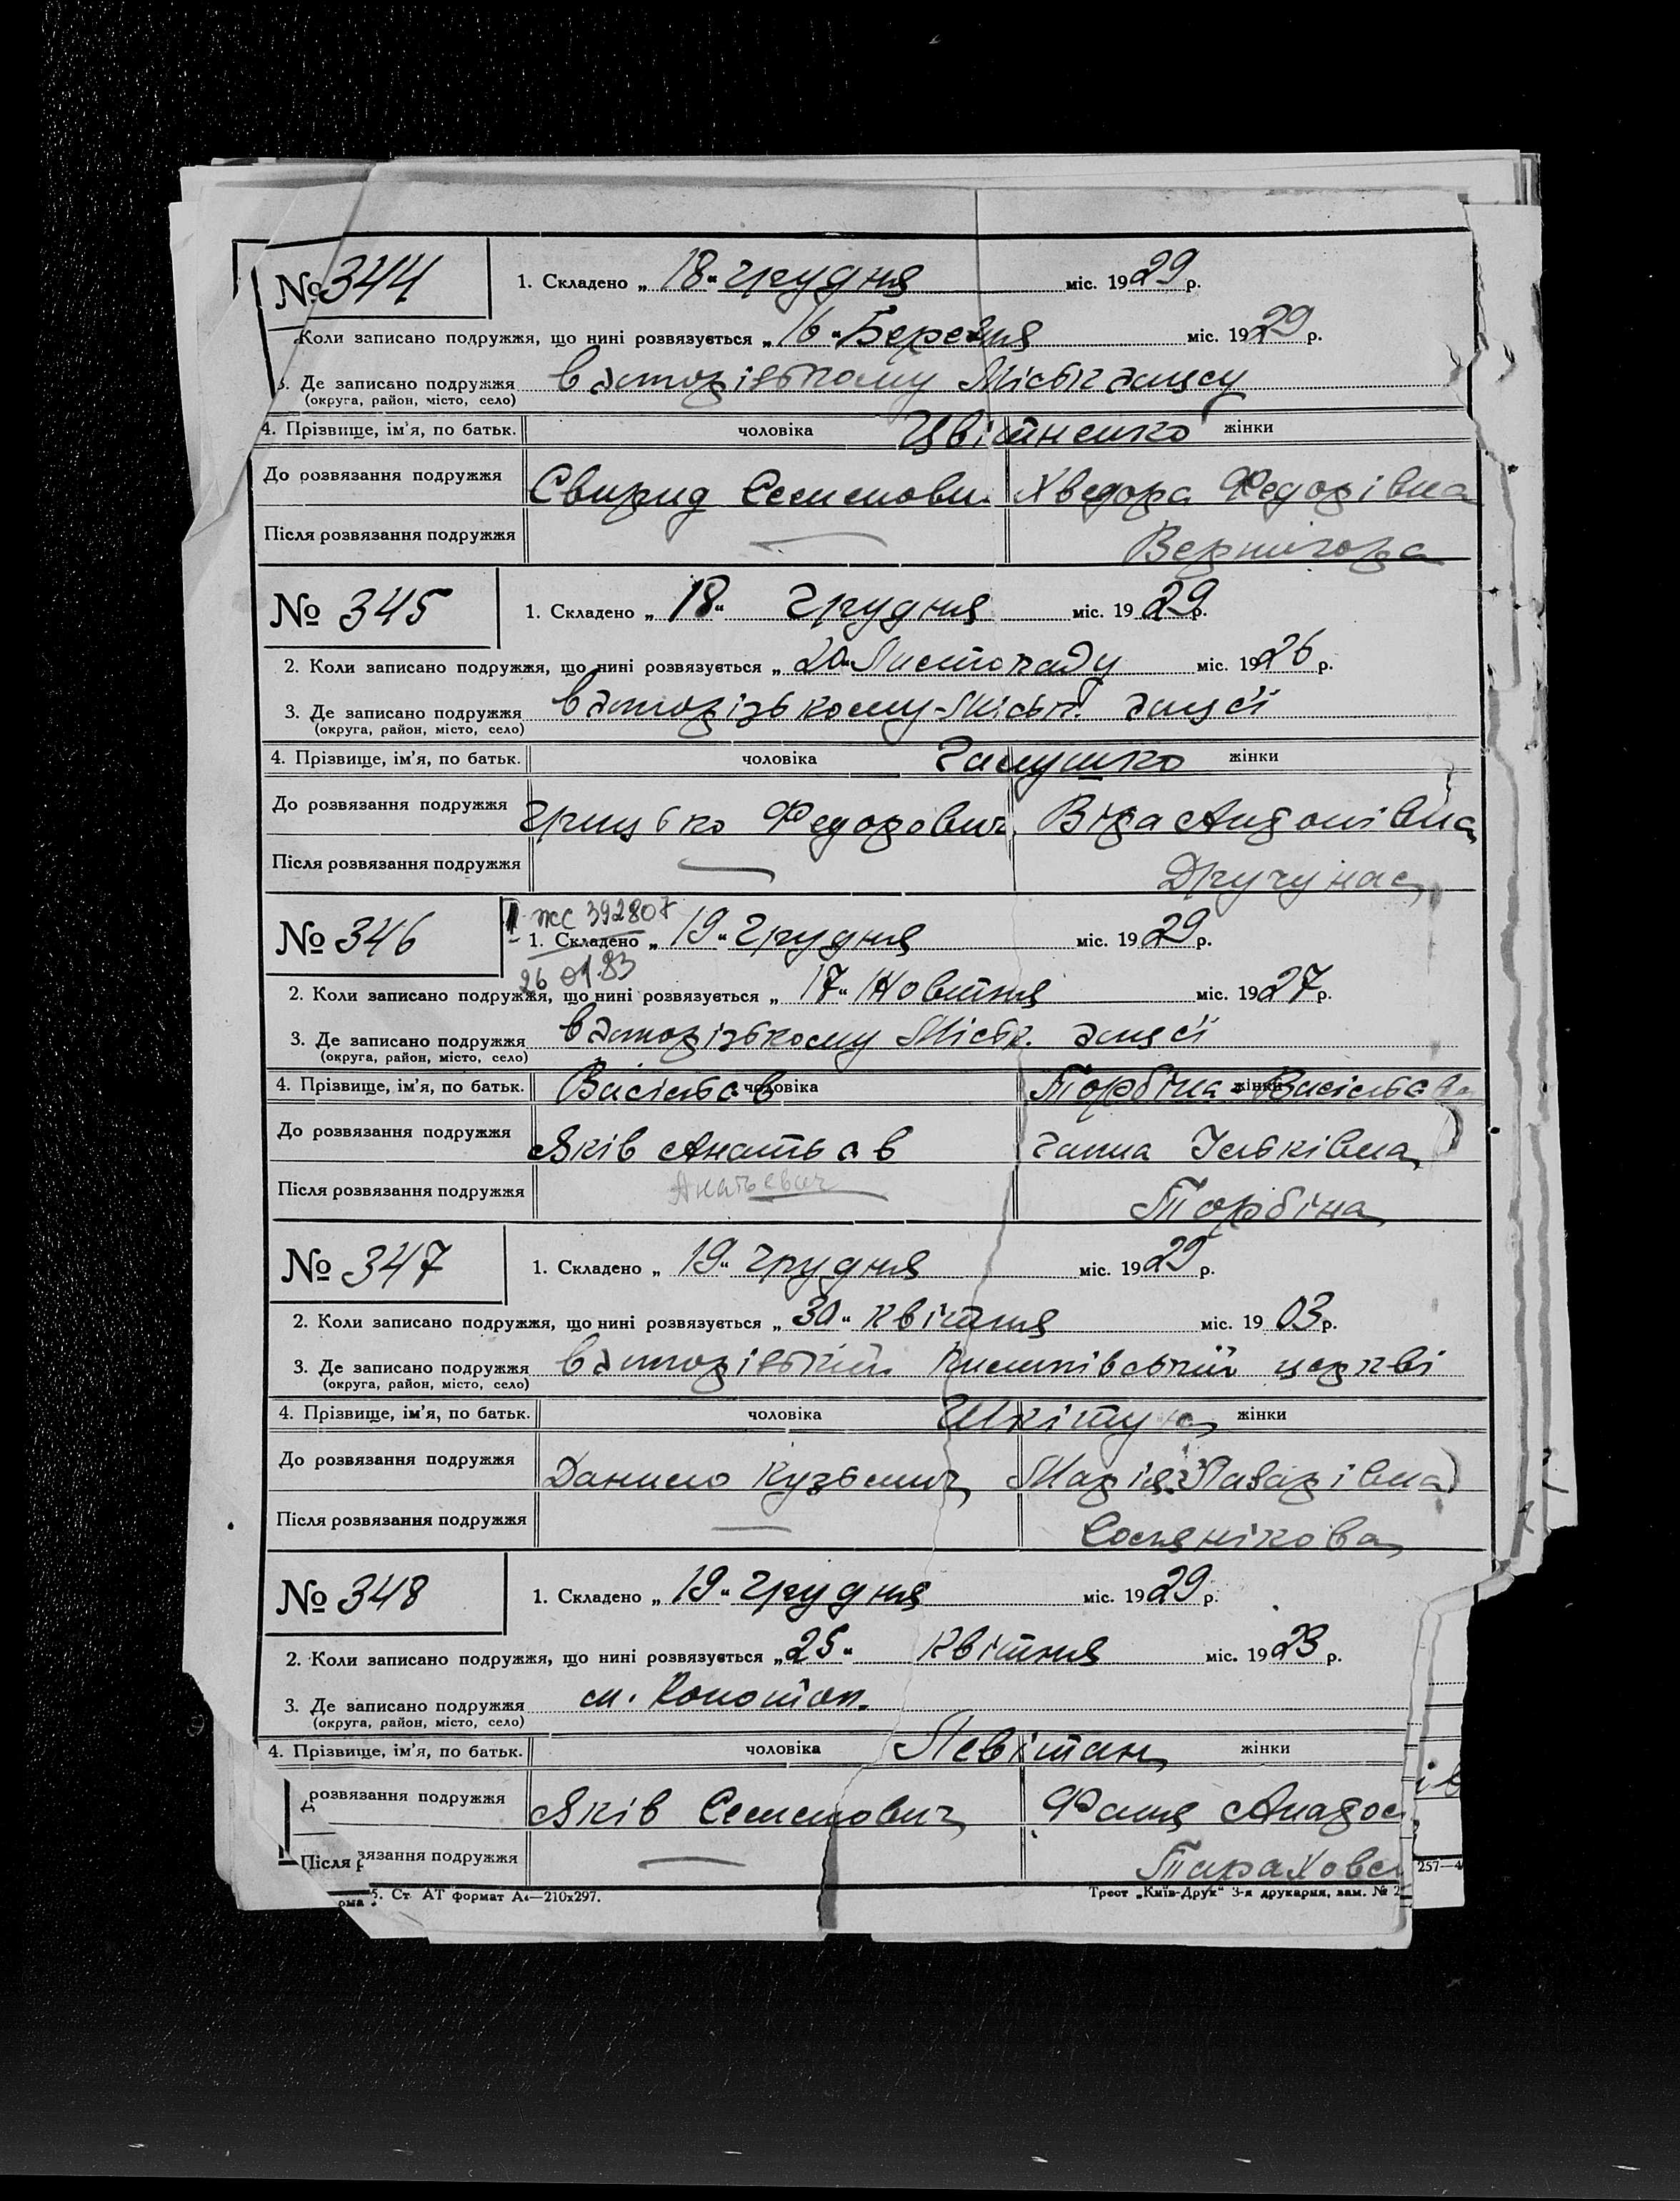 № 344
1. Складено „ 18 “ грудня міс. 1929 р.
Коли записано подружжя, що нині розвязується „ 16 “ Березня міс. 1929 р.
3. Де записано подружжя
(округа, район, місто, село)
4. Прізвище, ім'я, по батьк. чоловіка Цвітненко жінки
До розвязання подружжя Свирид Семенови Хведора Федорівна
Після розвязання подружжя — Вернигора
№ 345
1. Складено „ 18 “ Грудня міс. 1929 р.
2. Коли записано подружжя, що нині розвязується „ 20 “ Листопаду міс. 1926 р.
3. Де записано подружжя
(округа, район, місто, село)
4. Прізвище, ім'я, по батьк. чоловіка Галушко жінки
До розвязання подружжя Грицько Федорович Віра Антонівна
Після розвязання подружжя —
№ 346
ЖС 392807
1. Складено „ 19 “ Грудня міс. 1929 р.
26 01.83
2. Коли записано подружжя, що нині розвязується „ 17 “ Жовтня міс. 1927 р.
3. Де записано подружжя
(округа, район, місто, село)
4. Прізвище, ім'я, по батьк. чоловіка Торбіна жінки
До розвязання подружжя Яків Ганна Ільківна
Після розвязання подружжя Анатьевич Торбіна
№ 347
1. Складено „ 19 “ грудня міс. 1929 р.
2. Коли записано подружжя, що нині розвязується „ 30 “ квітня міс. 1903 р.
3. Де записано подружжя церкві
(округа, район, місто, село)
4. Прізвище, ім'я, по батьк. чоловіка жінки
До розвязання подружжя Данило Кузьмич Марія Лазарівна
Після розвязання подружжя —
№ 348
1. Складено „ 19 “ Грудня міс. 1929 р.
2. Коли записано подружжя, що нині розвязується „ 25 “ квітня міс. 1923 р.
3. Де записано подружжя м. Конотоп.
(округа, район, місто, село)
4. Прізвище, ім'я, по батьк. чоловіка Левітан жінки
розвязання подружжя Яків Семенович Фаня
Після розвязання подружжя — Тараховс
5. Ст АТ формат А4—210х297. Трест „Київ-Друк“ 3-я друкарня, зам. № 2
257—4